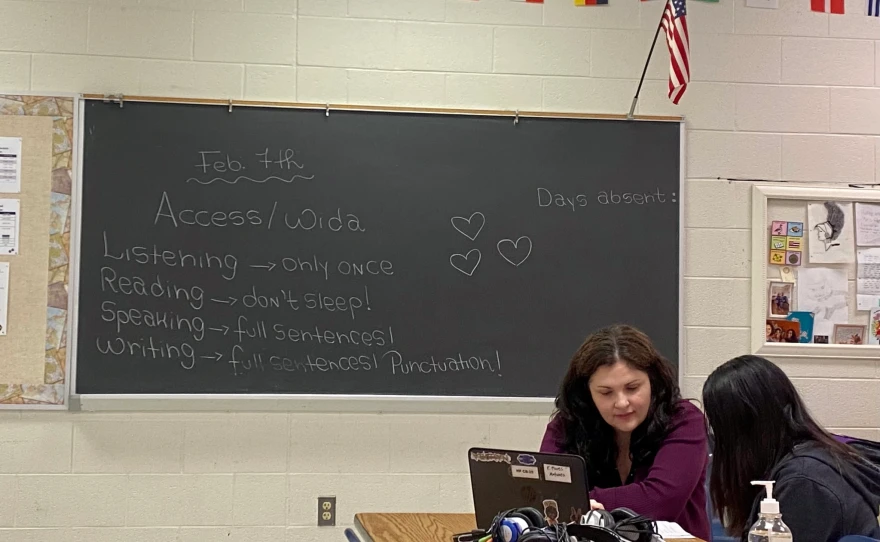 Feb. 7th
Access/Wida
Days absent:
Listening → only once
Reading → don't sleep!
Speaking → full sentences!
Writing → full sentences! Punctuation!